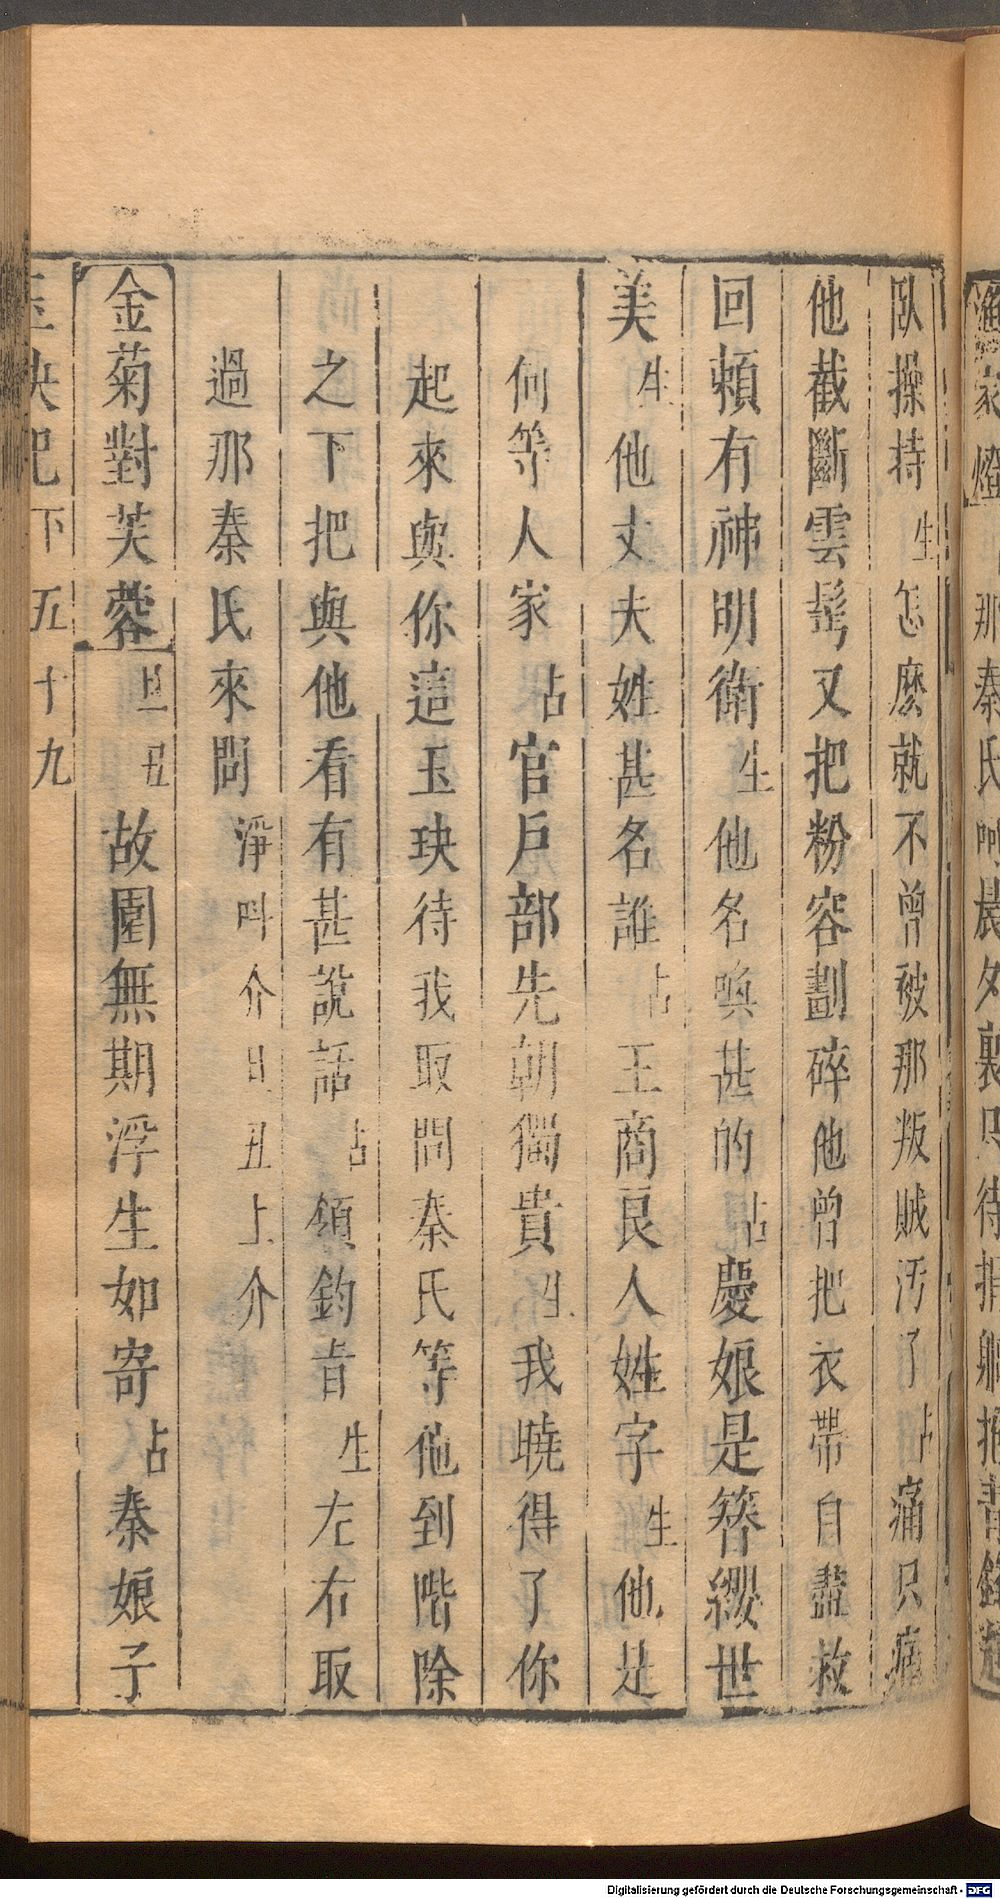 家燈 那秦氏呵晨夕裏只待捐軀
臥操持 生 怎麽就不曾被那叛賊汚了 占 痛只痛
他截斷雲髩又把粉容劃碎他曾把衣帶自盡救
回頼有神明衛 生 他名喚甚的 占 慶娘是簪纓世
美 生 他丈夫姓甚名誰 占 王商良人姓字 生 他是
何等人家 占 官戶部先朝獨貴 生 我曉得了你
起來與你這玉玦待我取問秦氏等他到階除
之下把與他看有甚說話 占 領鈞旨 生 左右取
過那秦氏來問 淨叫介旦丑上介
金菊對芙蓉 旦 丑 故園無期浮生如寄 占 秦娘子
玉玦記下 五十九
Digitalisierung gefördert durch die Deutsche Forschungsgemeinschaft - DFG